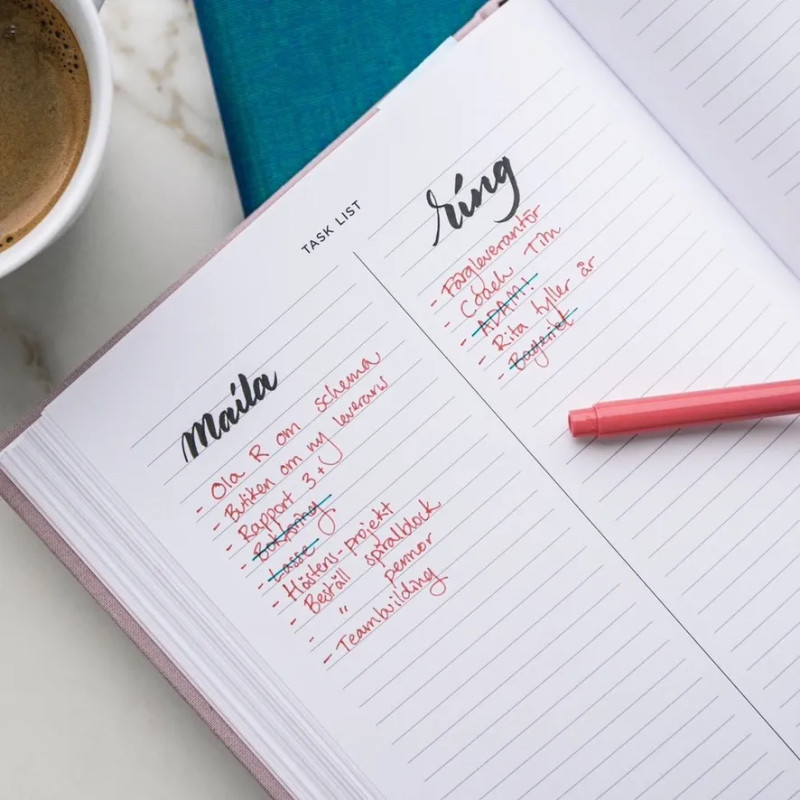 TASK LIST
maila
- Ola R om schema
- Butiken om ny leverans
- Rapport 3+y
- Bokföring
- Lasse j.
- Höstens-projekt
- Beställ spiralblock
- " pennor
- Teambuilding
ring
- Färgleverantör
- Coach Tim
- ADAM!
- Rita fyller år
- Bageriet